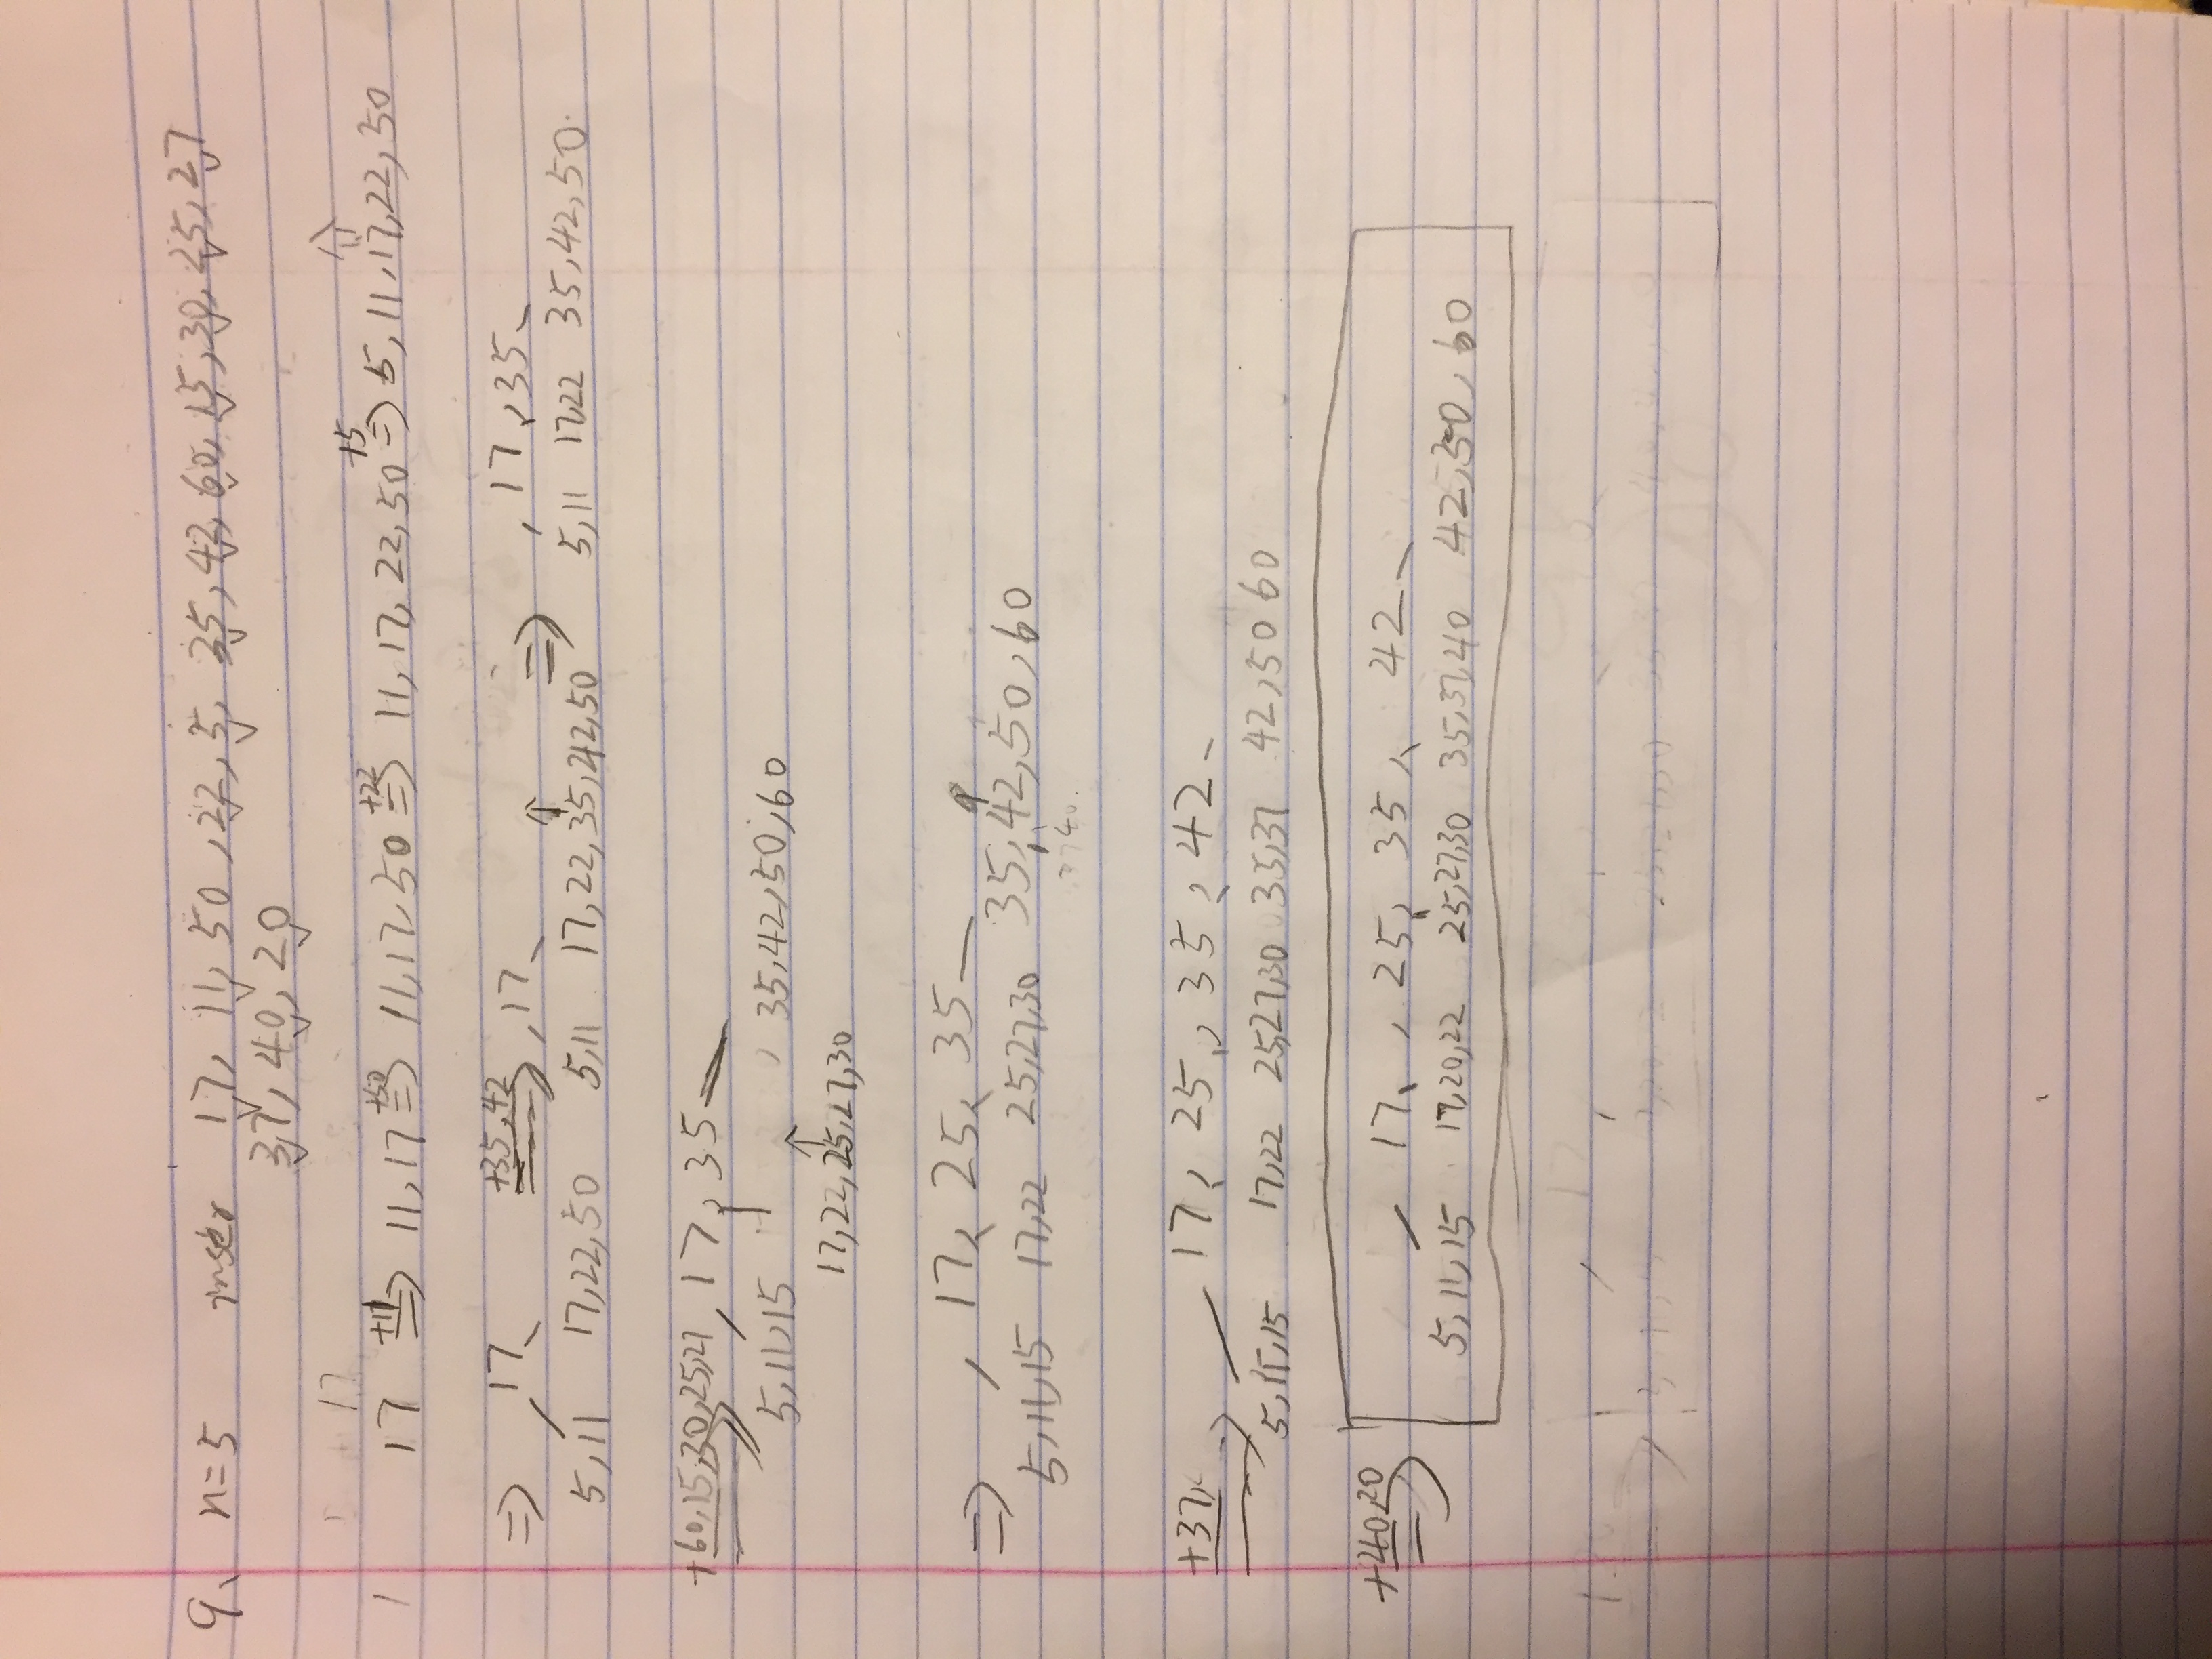 9、 n=5 inser 17, 11, 50, 22, 5, 35, 42, 60, 15, 30, 25, 27
37, 40, 20
17
1 17 +11 ⇒ 11, 17 +50 ⇒ 11, 17, 50 +22 ⇒ 11, 17, 22, 50 +5 ⇒ 5, 11, 17, 22, 50
⇒ 17 +35,42 ⇒ 17 ⇒ 17, 35
5, 11 17, 22, 50 5, 11 17, 22, 35, 42, 50 5, 11 17, 22 35, 42, 50
+60,15,30,25,27 ⇒ 17, 35
5, 11, 15 35, 42, 50, 60
17, 22, 25, 27, 30
⇒ 17, 25, 35
5, 11, 15 17, 22 25, 27, 30 35, 42, 50, 60
37 40
+37, ⇒ 17, 25, 35, 42
5, 11, 15 17, 22 25, 27, 30 35, 37 42, 50 60
+40,20 ⇒ 17, 25, 35, 42
5, 11, 15 17, 20, 22 25, 27, 30 35, 37, 40 42, 50, 60